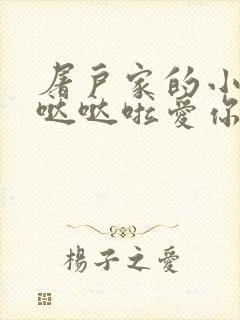 屠户家的小
哒哒啦爱你
楊子之愛